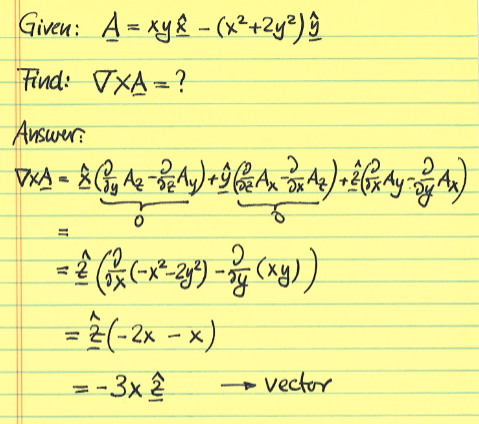 Given: A = xy x̂ - (x²+2y²) ŷ
Find: ∇×A = ?
Answer:
∇×A = x̂ (∂/∂y Az - ∂/∂z Ay) + ŷ (∂/∂z Ax - ∂/∂x Az) + ẑ (∂/∂x Ay - ∂/∂y Ax)
0 0
=
= ẑ (∂/∂x (-x²-2y²) - ∂/∂y (xy))
= ẑ (-2x - x)
= -3x ẑ → vector